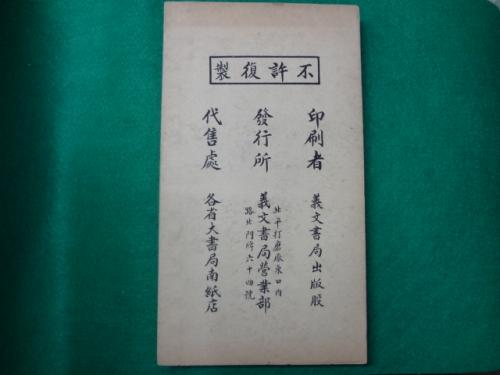 不許復製
印刷者 義文書局出版股
發行所 北平打磨廠東口內路北門牌六十四號 義文書局營業部
代售處 各省大書局南紙店